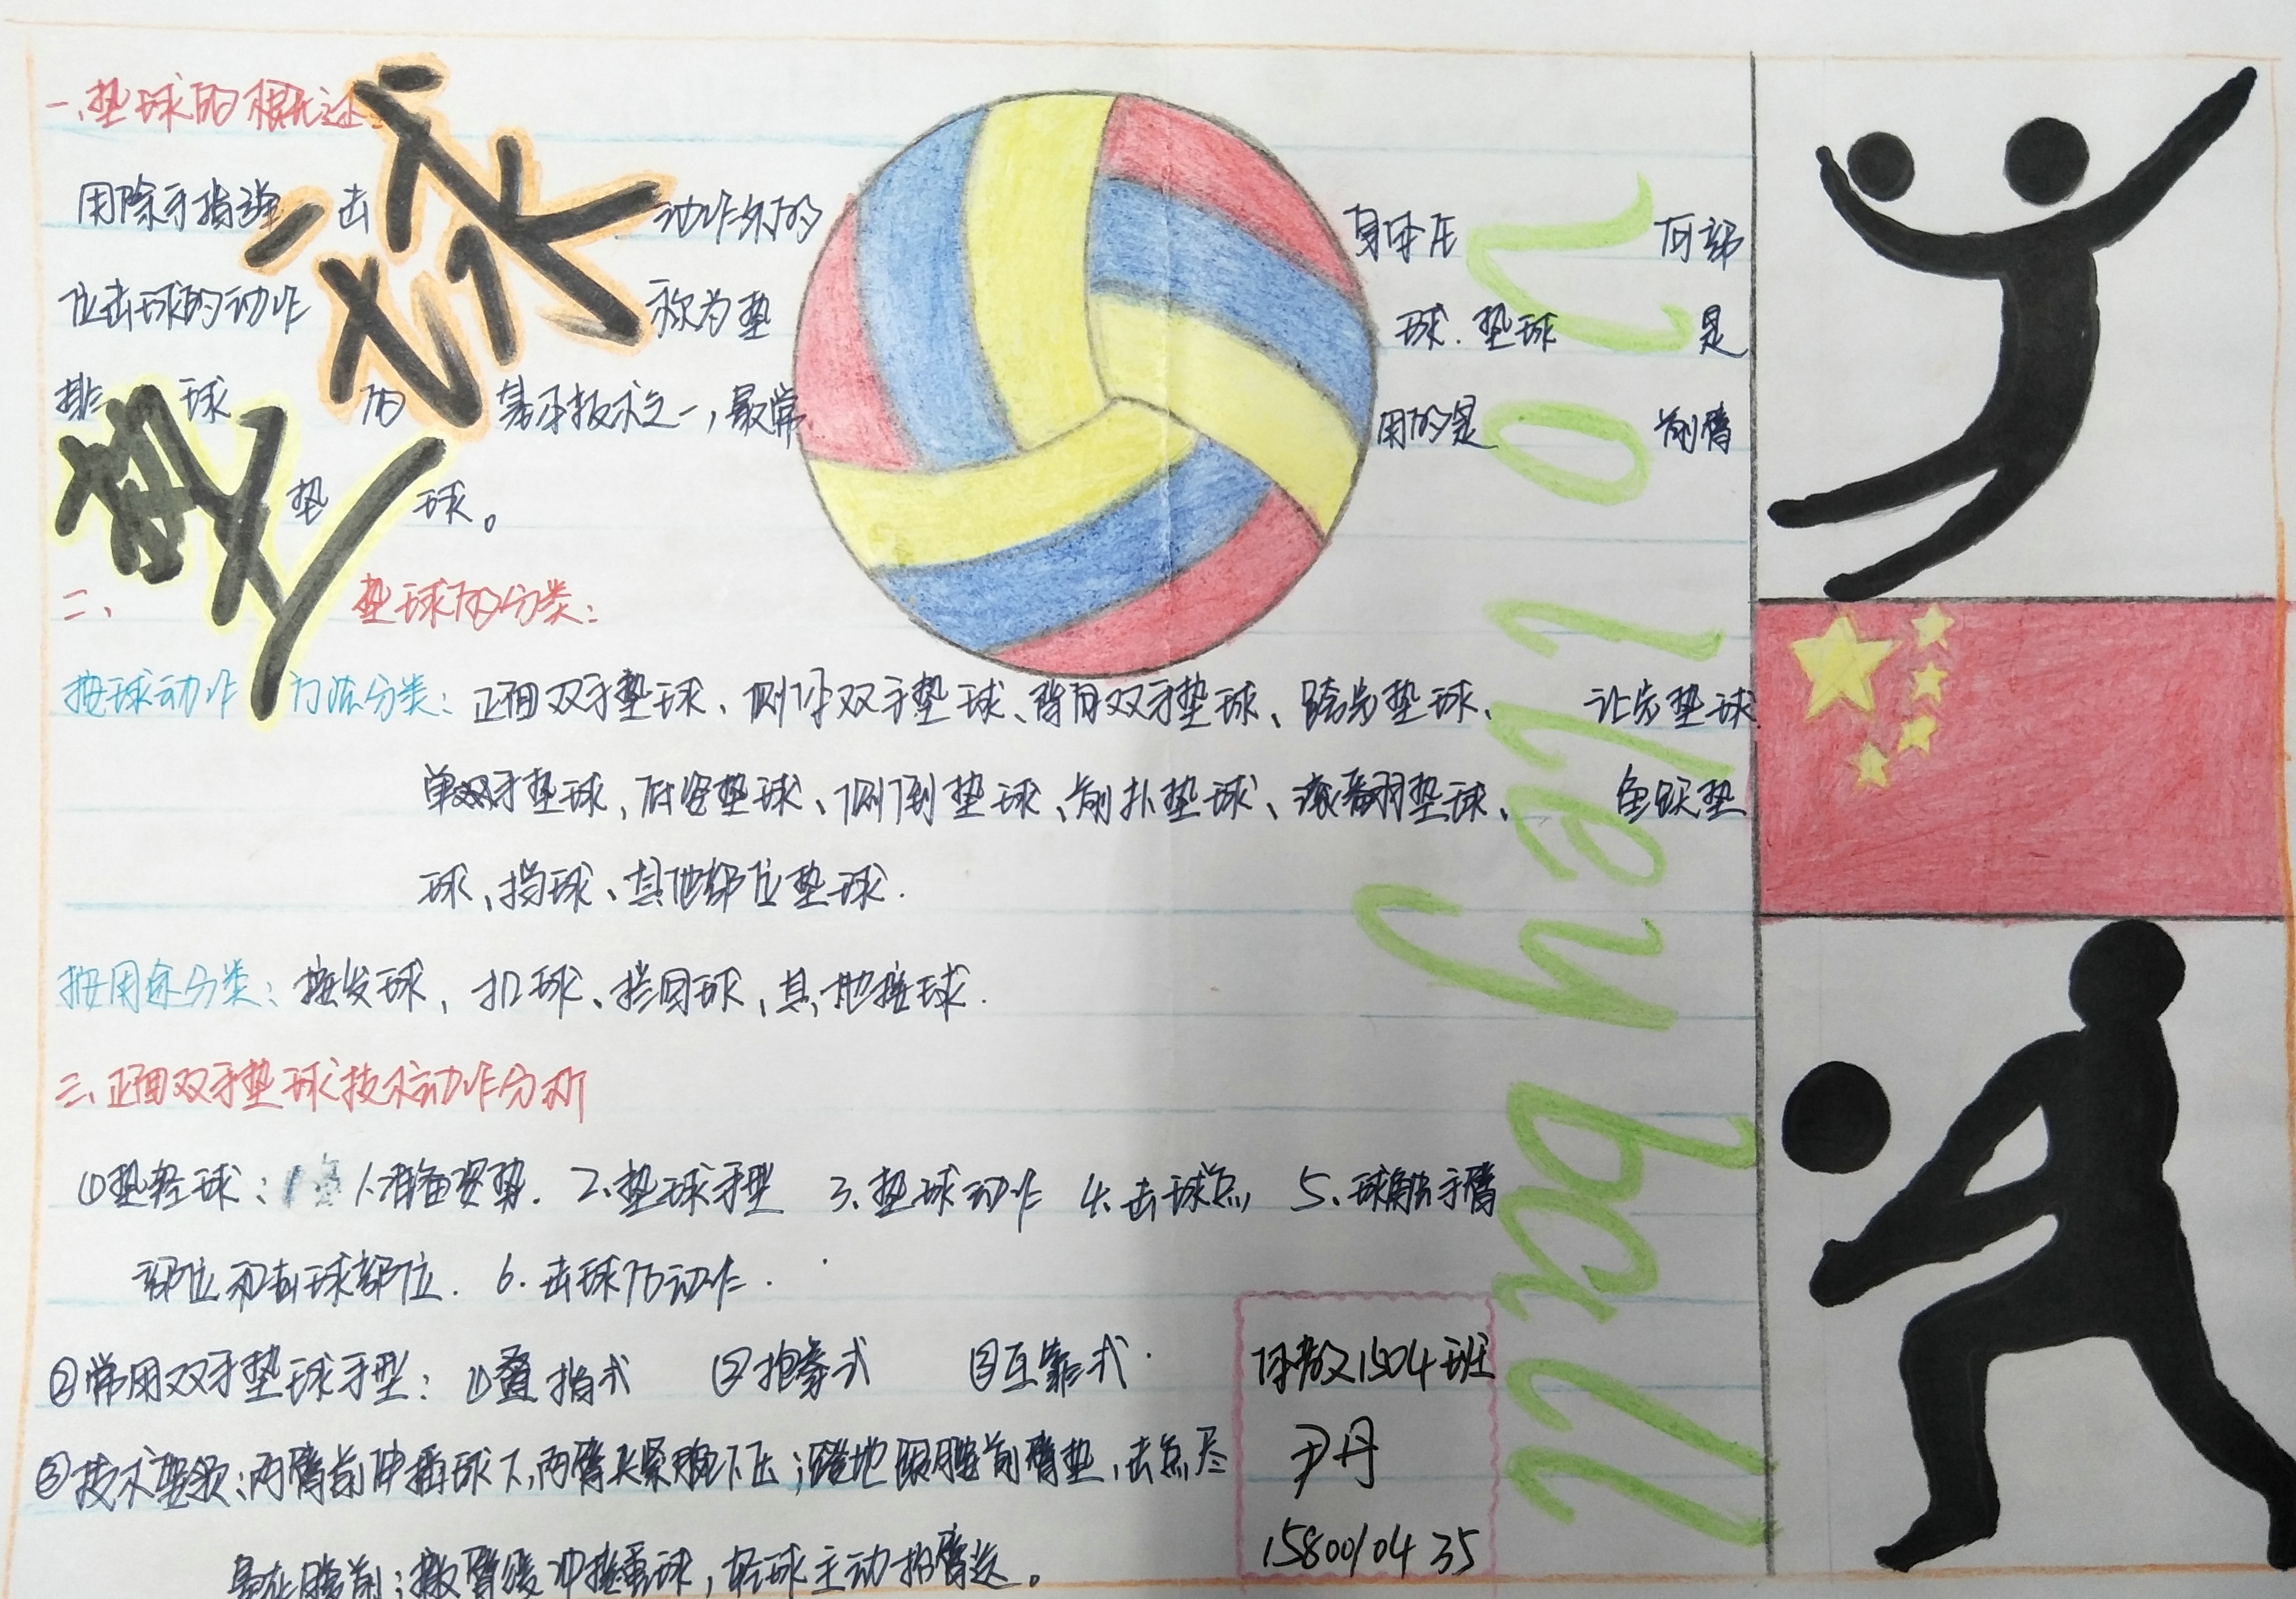 一、垫球的概述：
垫球
用除手指弹击动作外的身体任何部
位击球的动作称为垫球.垫球是
排球的基本技术之一，最常用的是前臂
垫球。
二、垫球的分类：
按球动作方法分类：正面双手垫球、侧体双手垫球、背向双手垫球、跨步垫球、让步垫球.
单手垫球，低姿垫球、侧倒垫球、前扑垫球、滚翻垫球、鱼跃垫
球、挡球、其他部位垫球.
按用途分类：接发球，扣球、拦回球，其他接球.
三、正面双手垫球技术动作分析
①垫轻球：1.准备姿势. 2.垫球手型 3.垫球动作 4.击球点 5.球触手臂
部位和击球部位. 6.击球的动作.
②常用双手垫球手型：①叠指式 ②抱拳式 ③互靠式.
③技术要领：两臂前伸插球下,两臂夹紧腕下压；蹬地跟腰前臂垫，击点尽
量在腰前；撤臂缓冲接重球，轻球主动抬臂送。
volleyball
体教1504班
尹丹
1580010435